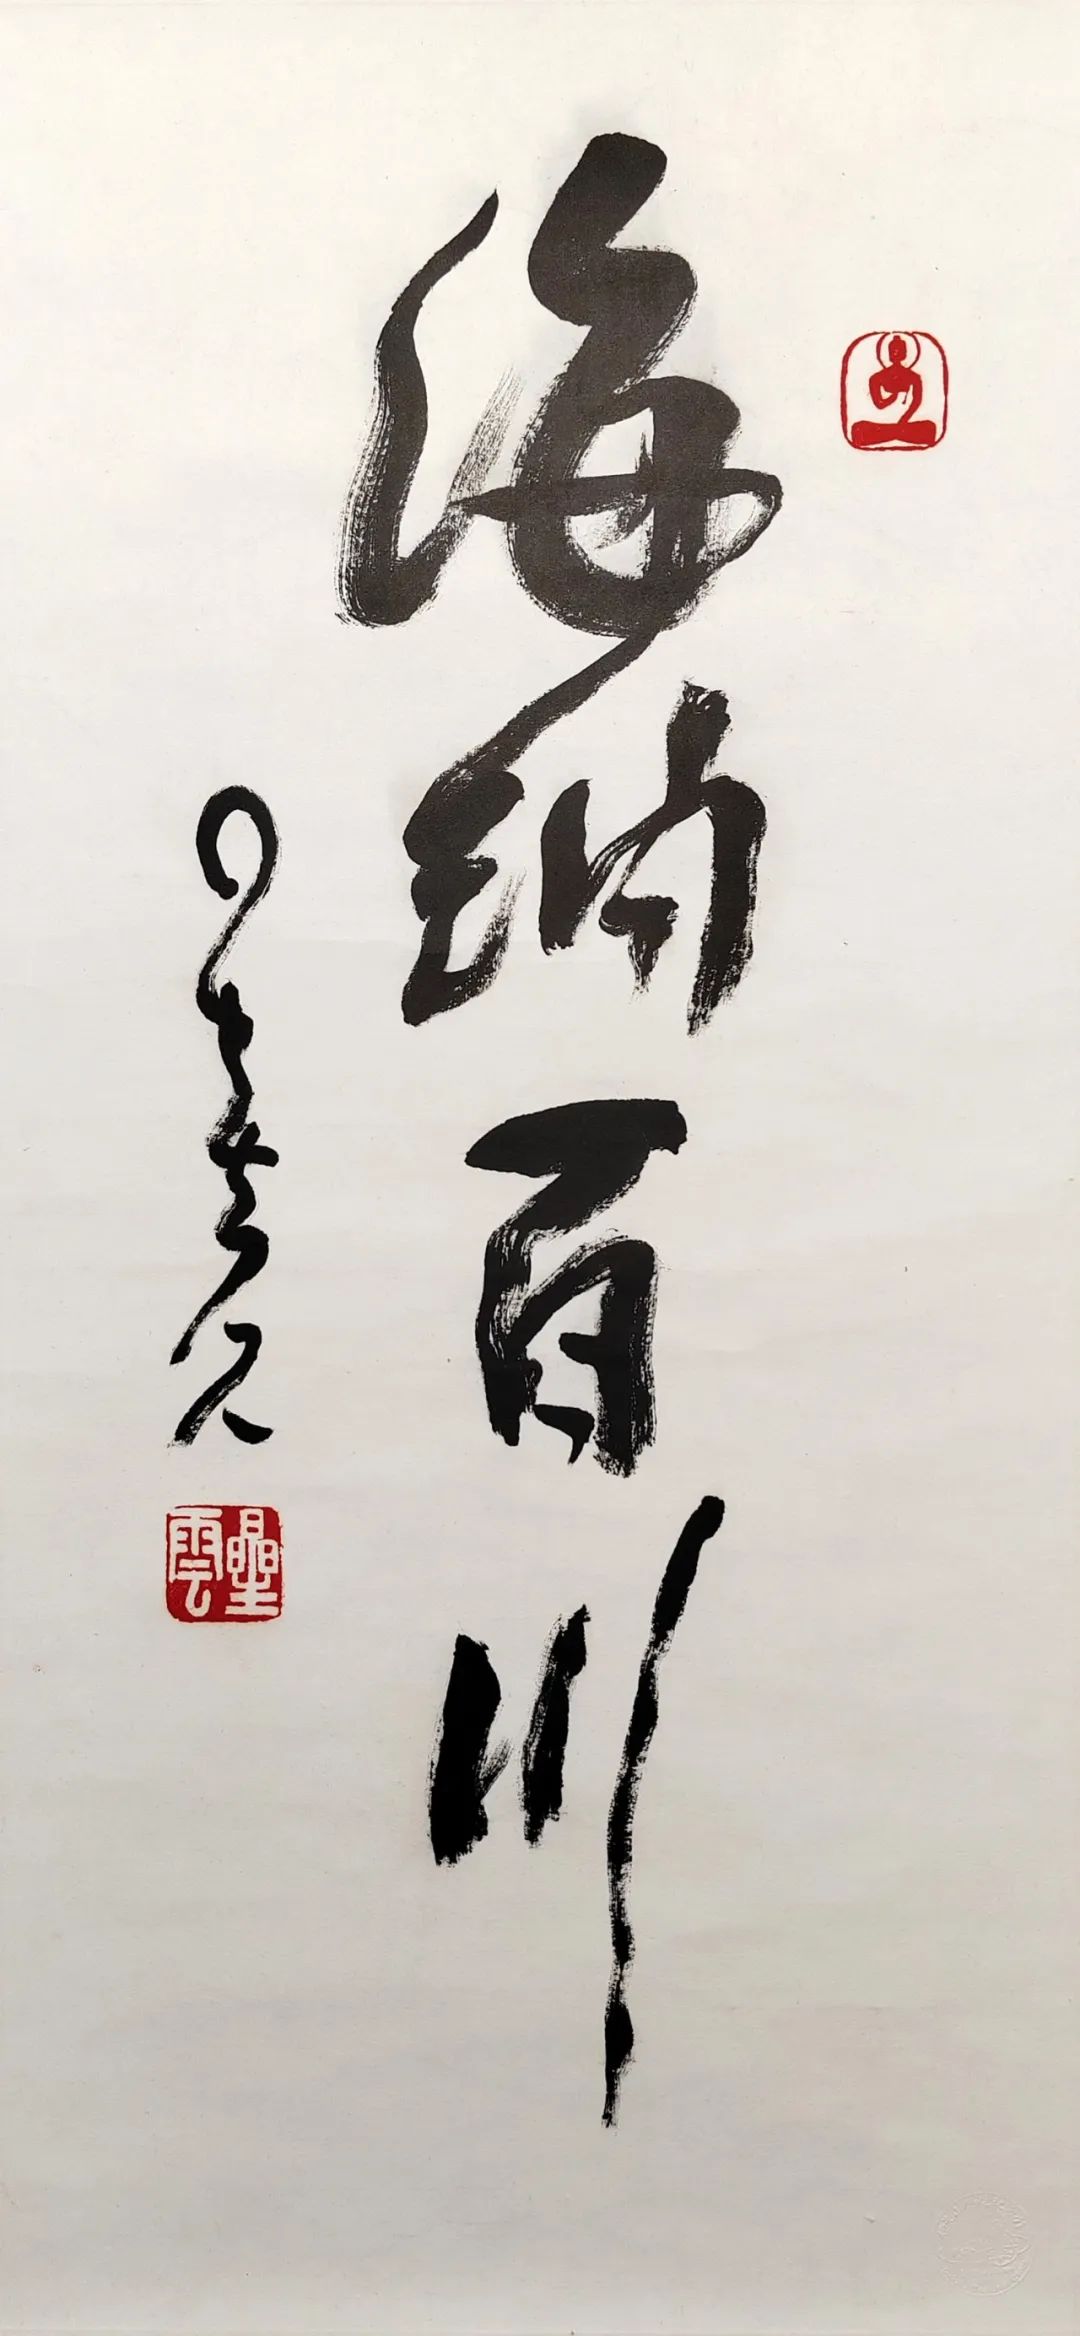 海納百川
星雲
星雲